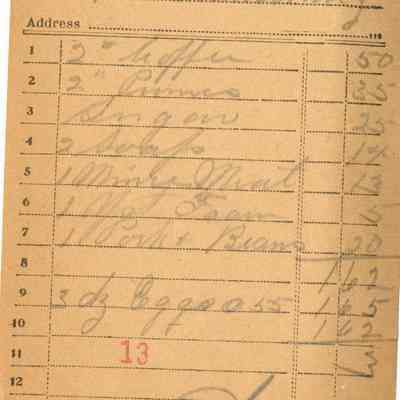 Address
1 2 " Coffee 50
2 2 " Prunes 35
3 Sugar 25
4 2 Soaps 14
5 1 Mince Meat 13
6 1 Foam 5
7 1 Pork & Beans 20
8 162
9 3 dz Eggs @ 55 165
10 162
11 13
12